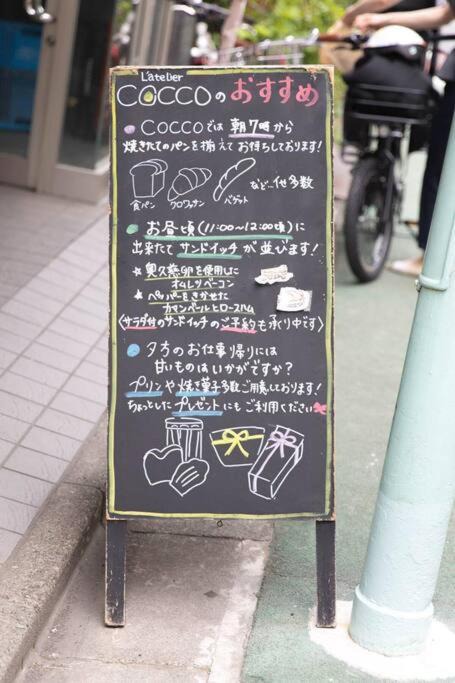 L'atelier
COCCOのおすすめ
COCCOでは 朝7時から
焼きたてのパンを揃えてお待ちしております!
食パン
クロワッサン
バゲット
など…他多数
お昼頃(11:00〜12:00頃)に
出来たて サンドイッチが並びます!
☆奥久慈卵を使用した
オムレツベーコン
☆ペッパーをきかせた
カマンベールとロースハム
〈サラダ付のサンドイッチのご予約も承り中です〉
夕方のお仕事帰りには
甘いものはいかがですか?
プリンや焼き菓子多数ご用意しております!
ちょっとしたプレゼントにもご利用ください